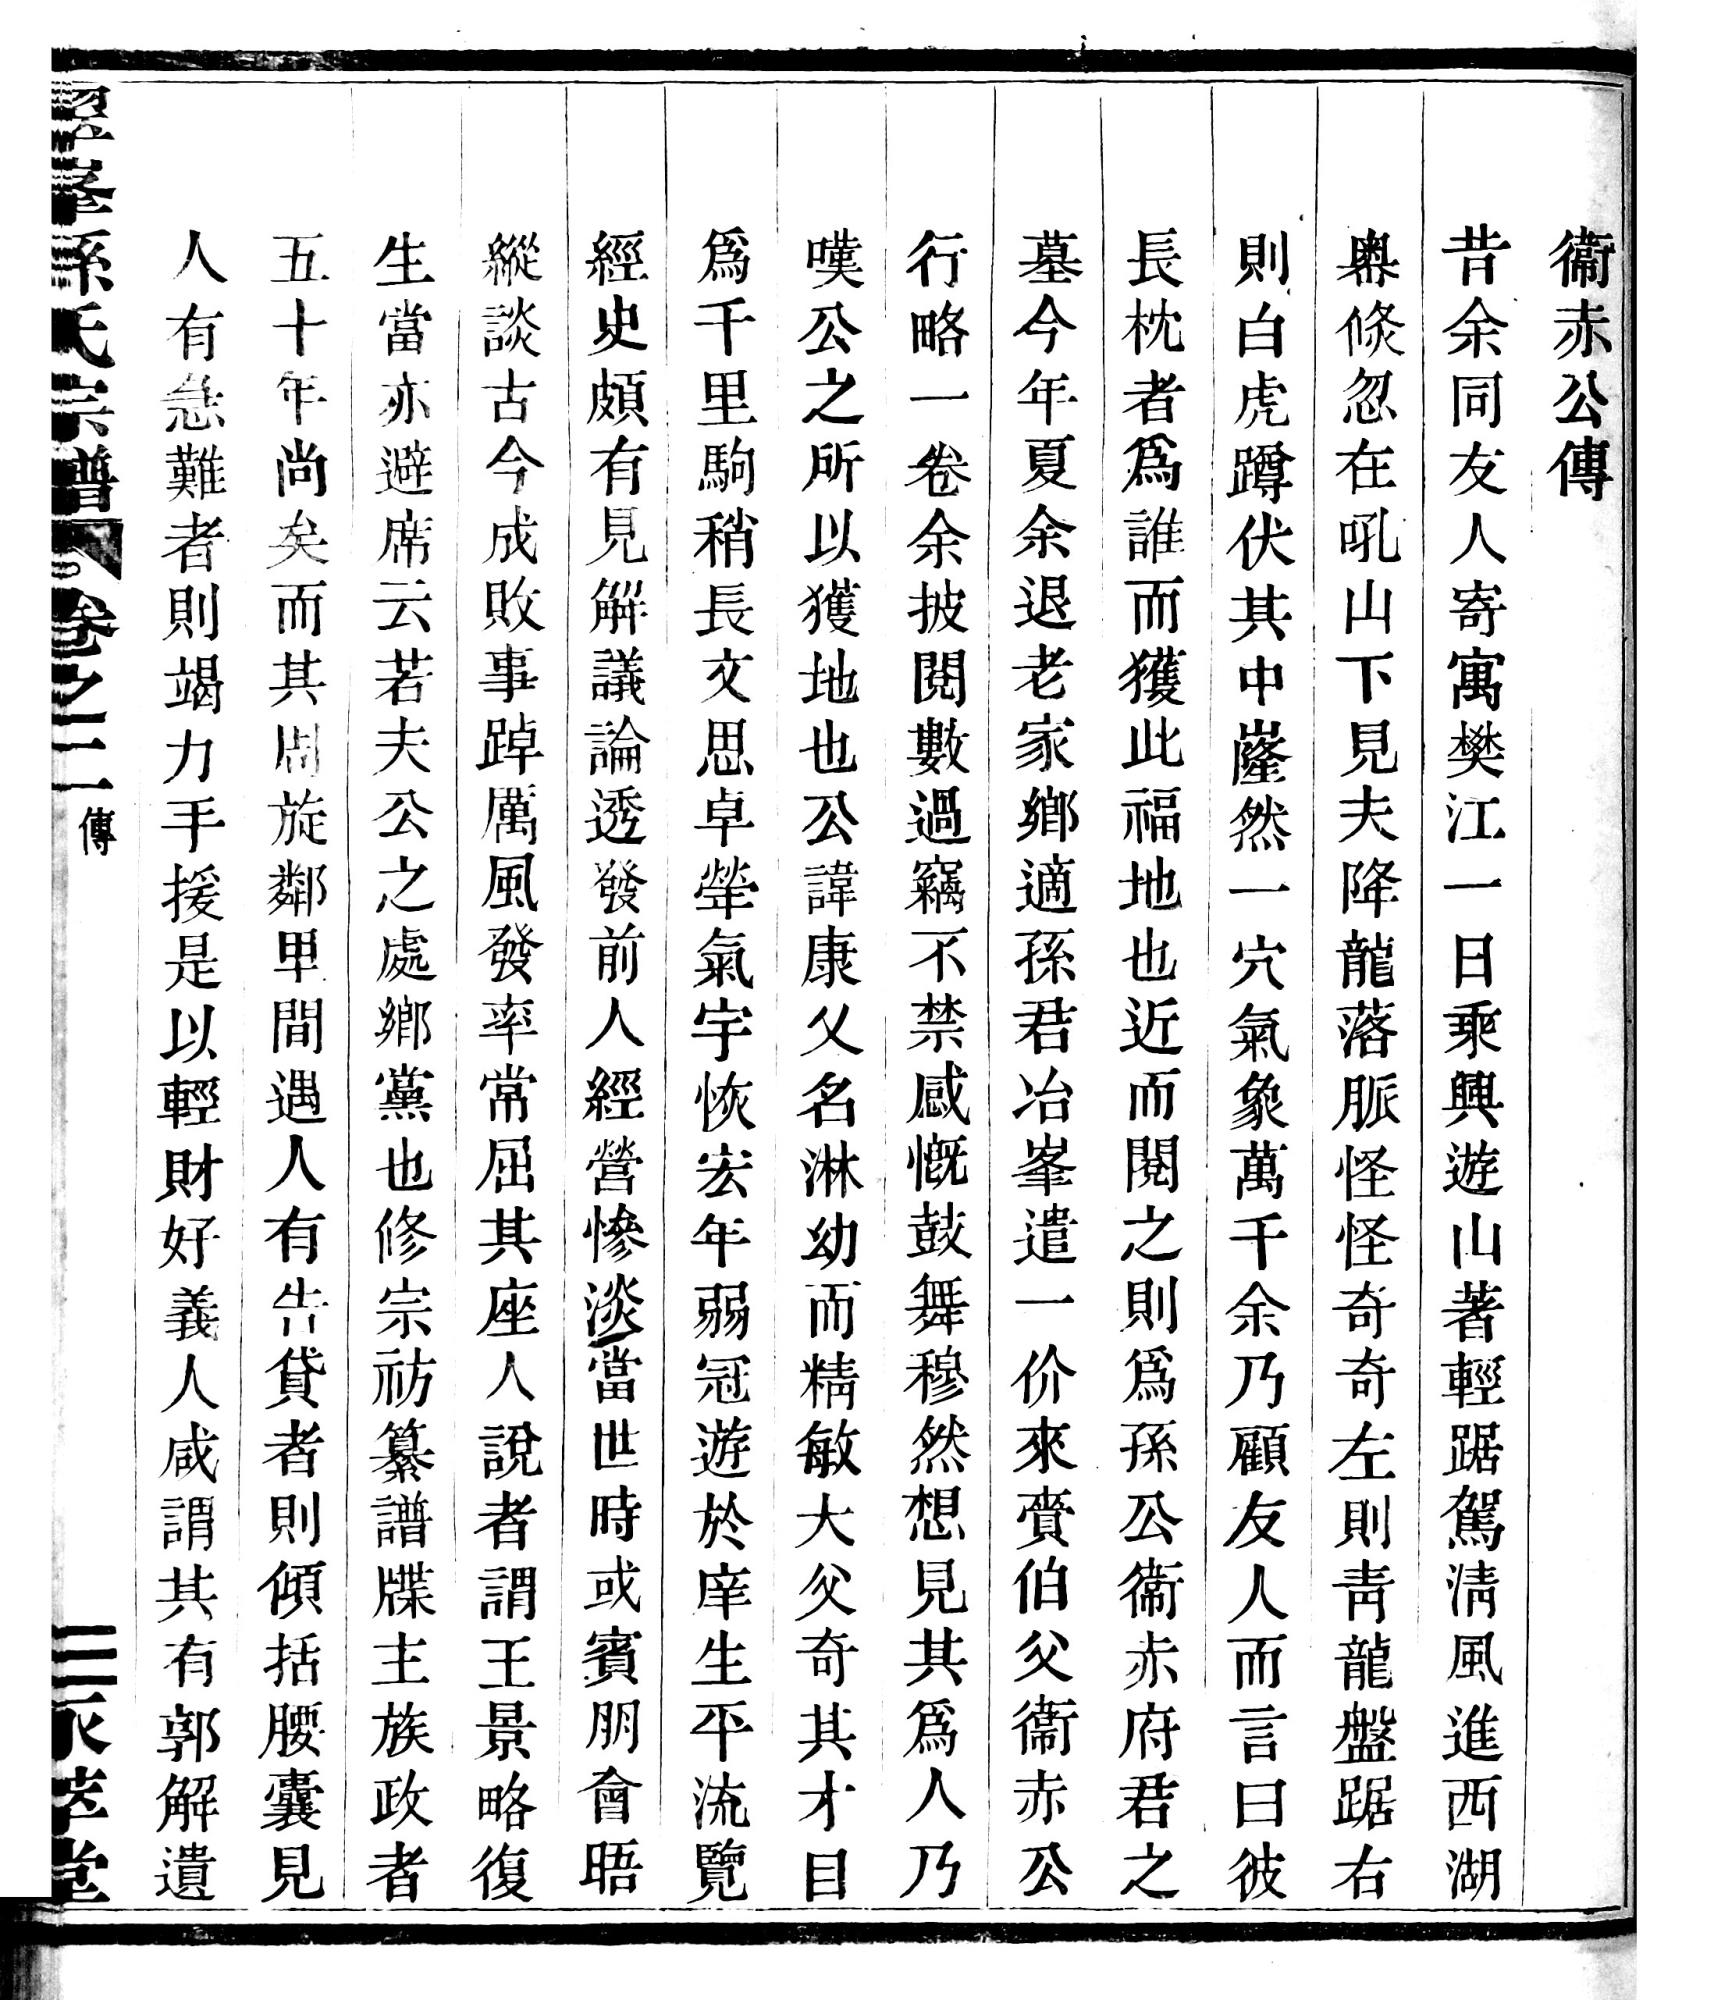 衞赤公傳
昔余同友人寄寓樊江一日乘興遊山著輕踞駕淸風進西湖
粤倐忽在吼山下見夫降龍落脈怪怪奇奇左則靑龍盤踞右
則白虎蹲伏其中窿然一穴氣象萬千余乃顧友人而言曰彼
長枕者爲誰而獲此福地也近而閱之則爲孫公衞赤府君之
墓今年夏余退老家鄉適孫君冶峯遣一价來賷伯父衞赤公
行略一卷余披閱數過竊不禁感慨鼓舞穆然想見其爲人乃
嘆公之所以獲地也公諱康父名淋幼而精敏大父奇其才目
爲千里駒稍長文思卓犖氣宇恢宏年弱冠遊於庠生平流覽
經史頗有見解議論透發前人經營慘淡當世時或賓朋會晤
縱談古今成敗事踔厲風發率常屈其座人說者謂王景略復
生當亦避席云若夫公之處鄉黨也修宗祊纂譜牒主族政者
五十年尚矣而其周旋鄰里間遇人有告貸者則傾括腰囊見
人有急難者則竭力手援是以輕財好義人咸謂其有郭解遺
峯孫氏宗譜 卷之二 傳 三 永萃堂